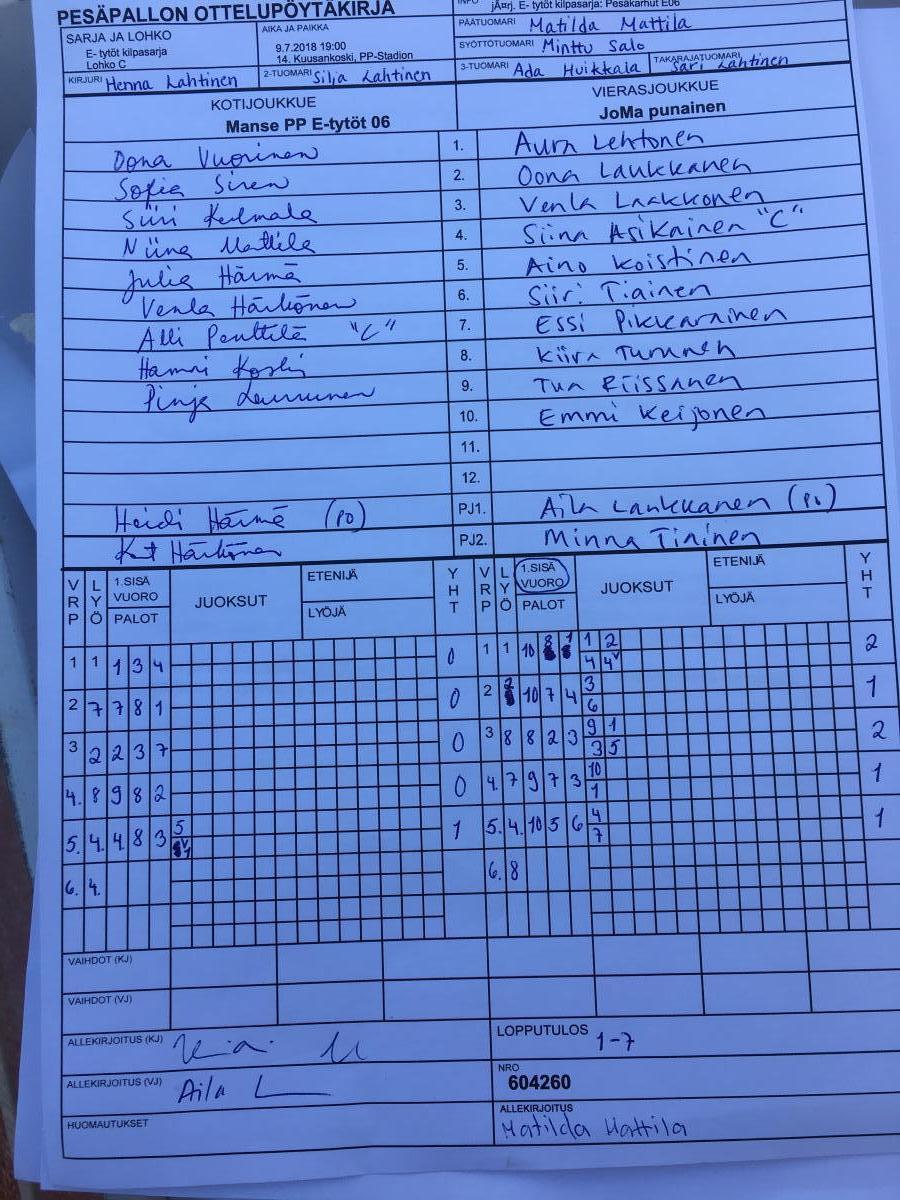 PESÄPALLON OTTELUPÖYTÄKIRJA
INFO jÄ¤rj. E- tytöt kilpasarja: Pesäkarhut E06
SARJA JA LOHKO AIKA JA PAIKKA PÄÄTUOMARI Matilda Mattila
E- tytöt kilpasarja
Lohko C
9.7.2018 19:00
14. Kuusankoski, PP-Stadion
SYÖTTÖTUOMARI Minttu Salo
KIRJURI Henna Lahtinen 2-TUOMARI Silja Lahtinen 3-TUOMARI Ada Huikkala TAKARAJATUOMARI Sari Lahtinen
KOTIJOUKKUE VIERASJOUKKUE
Manse PP E-tytöt 06 JoMa punainen
Oona Vuorinen 1. Aura Lehtonen
Sofia Siren 2. Oona Laukkanen
Siiri Kulmala 3. Venla Laakkonen
Niina Mattila 4. Siina Asikainen "C"
Julia Härmä 5. Aino Koistinen
Venla Härkönen 6. Siiri Tiainen
Alli Penttilä "C" 7. Essi Pikkarainen
Hanni Koski 8. Kiira Turunen
Pinja 9. Tua Riissanen
10. Emmi Keijonen
11.
12.
Heidi Härmä (PO) PJ1. Aila Laukkanen (PO)
Härkönen PJ2. Minna Tiainen
VRP LYÖ 1.SISÄ VUORO PALOT JUOKSUT ETENIJÄ LYÖJÄ YHT VRP LYÖ 1.SISÄ VUORO PALOT JUOKSUT ETENIJÄ LYÖJÄ YHT
1 1 1 3 4 0 1 1 10 8 1 1 2 2
4 4v
2 7 7 8 1 0 2 2 10 7 4 3 1
6
3 2 2 3 7 0 3 8 8 2 3 9 1 2
3 5
4. 8 9 8 2 0 4. 7 9 7 3 10 1
1
5. 4. 4. 8 3 5 1 5. 4. 10 5 6 4 1
7
6. 4. 6. 8
VAIHDOT (KJ)
VAIHDOT (VJ)
ALLEKIRJOITUS (KJ) LOPPUTULOS 1-7
ALLEKIRJOITUS (VJ) Aila L NRO 604260
HUOMAUTUKSET ALLEKIRJOITUS Matilda Mattila